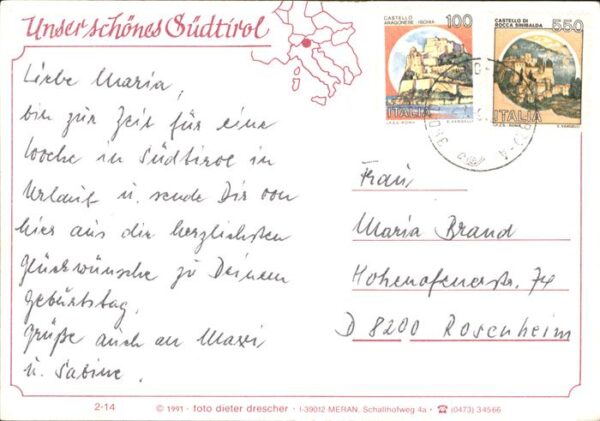 Unser schönes Südtirol
CASTELLO
ARAGONESE ISCHIA
100
ITALIA
I.P.Z.S. ROMA
E. VANGELLI
CASTELLO DI
ROCCA SINIBALDA
550
ITALIA
I.P.Z.S. ROMA
E. VANGELLI
Liebe Maria,
bin zur Zeit für eine
Woche in Südtirol in
Urlaub u. sende Dir von
hier aus die herzlichsten
Glückwünsche zu Deinem
Geburtstag.
Grüße auch an Maxi
u. Sabine.
Frau
Maria Brand
Hohenofenerstr. 74
D 8200 Rosenheim
2-14
© 1991 · foto dieter drescher · I-39012 MERAN, Schallhofweg 4a · ☎ (0473) 34566